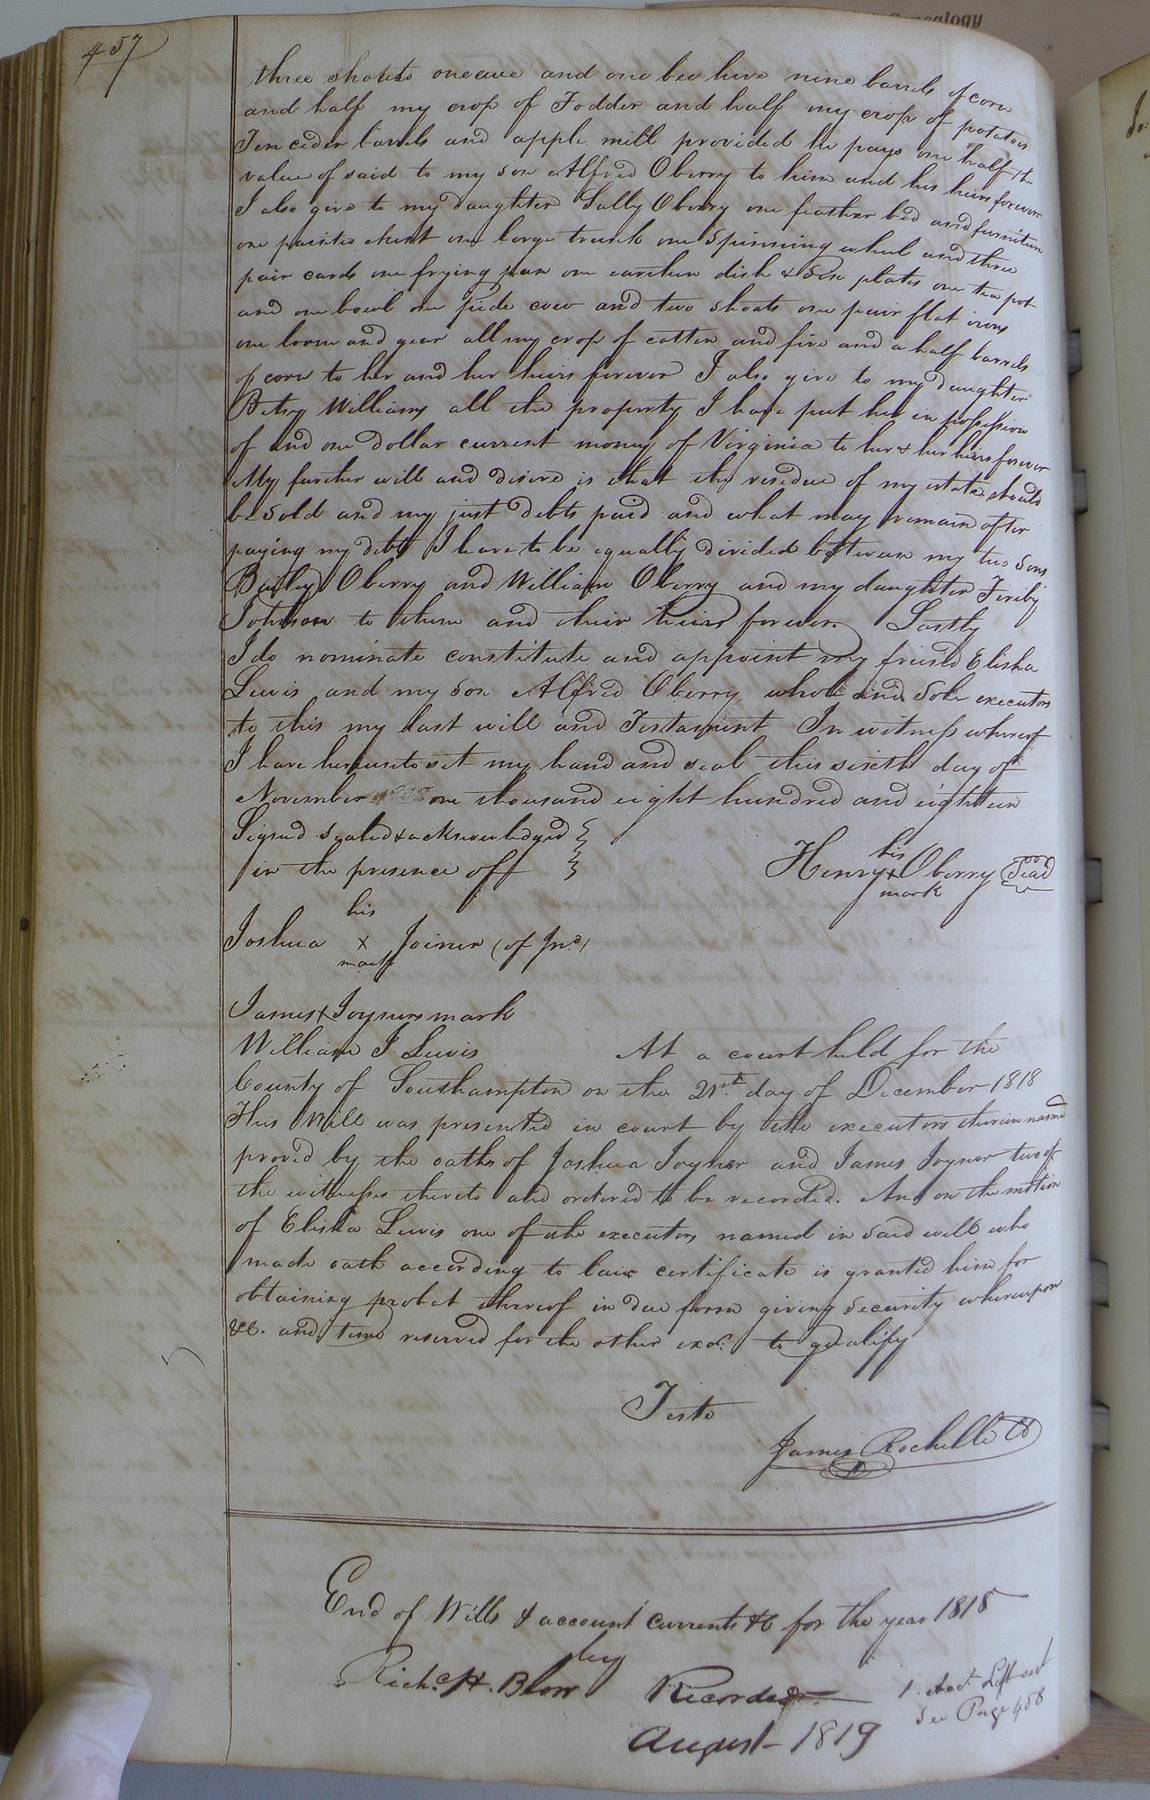 Genealogy
457
three shoats one ewe and one bee hive nine barrels of corn
and half my crop of Fodder and half my crop of potatoes
Ten cider barrels and apple mill provided he pays one half the
value of said to my son Alfred Oberry to him and his heirs forever
I also give to my daughter Sally Oberry one feather bed and furniture
one painted chest one large trunk one Spinning wheel and three
pair cards one frying pan one earthen dish & Six plates one tea pot
and one bowl one pide cow and two shoats one pair flat irons
one loom and gear all my crop of cotten and five and a half barrels
of corn to her and her heirs forever I also give to my daughter
Betsy Williams all the property I have put her in possession
of and one dollar current money of Virginia to her & her heirs forever
My further will and disire is that the residue of my estate should
be sold and my just debts paid and what may remain after
paying my debts I leave to be equally divided between my two Sons
Bailey Oberry and William Oberry and my daughter Feriby
Johnson to them and their heirs forever. Lastly
I do nominate constitute and appoint my friend Elisha
Lewis and my son Alfred Oberry whole and Sole executors
to this my last will and Testament In witness whereof
I have hereunto set my hand and seal this sixth day of
November one thousand eight hundred and eighteen
Signed sealed & acknowledged
in the presence of
his
Henry x Oberry Seal
mark
his
Joshua x Joiner (of Jno)
mark
James x Joyners mark
William J Lewis At a court held for the
County of Southampton on the 21st day of December 1818
This Will was presented in court by the executors therein named
proved by the oaths of Joshua Joyner and James Joyner two of
the witnesses thereto and ordered to be recorded. And on the motion
of Elisha Lewis one of the executors named in said will who
made oath according to law certificate is granted him for
obtaining probat thereof in due form giving security whereupon
&c. and time reserved for the other exor. to qualify
Teste
James Rochelle Cl
End of Wills & account currents &c for the year 1818
by
Richd. H. Blow Recorder
August 1819
1. Acct. Left out
See Page 458